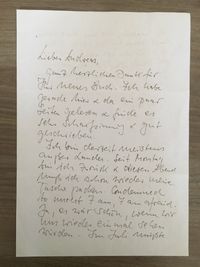 Lieber Andreas,
ganz herzlichen Dank für
Ihr neues Buch. Ich habe
gerade hier & da ein paar
Seiten gelesen & finde es
sehr scharfsinnig & gut
geschrieben.
Ich bin derzeit meistens
außer Landes. Seit Montag
bin ich zurück & diesen Abend
muß ich schon wieder meine
Tasche packen. Condemned
to 7 am, I am afraid.
Ja, es wär schön, wenn wir
uns wieder einmal sehen
würden. Im Juli müßte